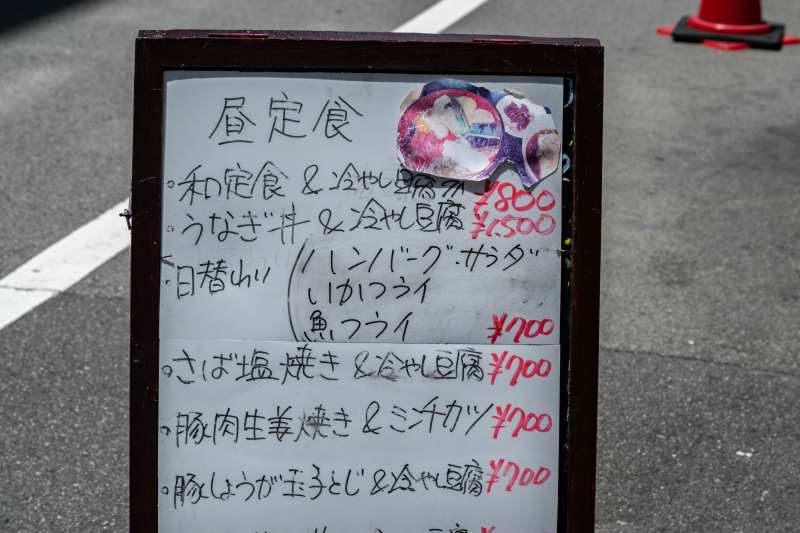 昼定食
・和定食 & 冷やし豆腐 ¥800
・うなぎ丼 & 冷やし豆腐 ¥1,500
・日替わり ハンバーグ・サラダ
いかフライ
魚フライ ¥700
・さば塩焼き & 冷やし豆腐 ¥700
・豚肉生姜焼き & ミンチカツ ¥700
・豚しょうが玉子とじ & 冷やし豆腐 ¥700